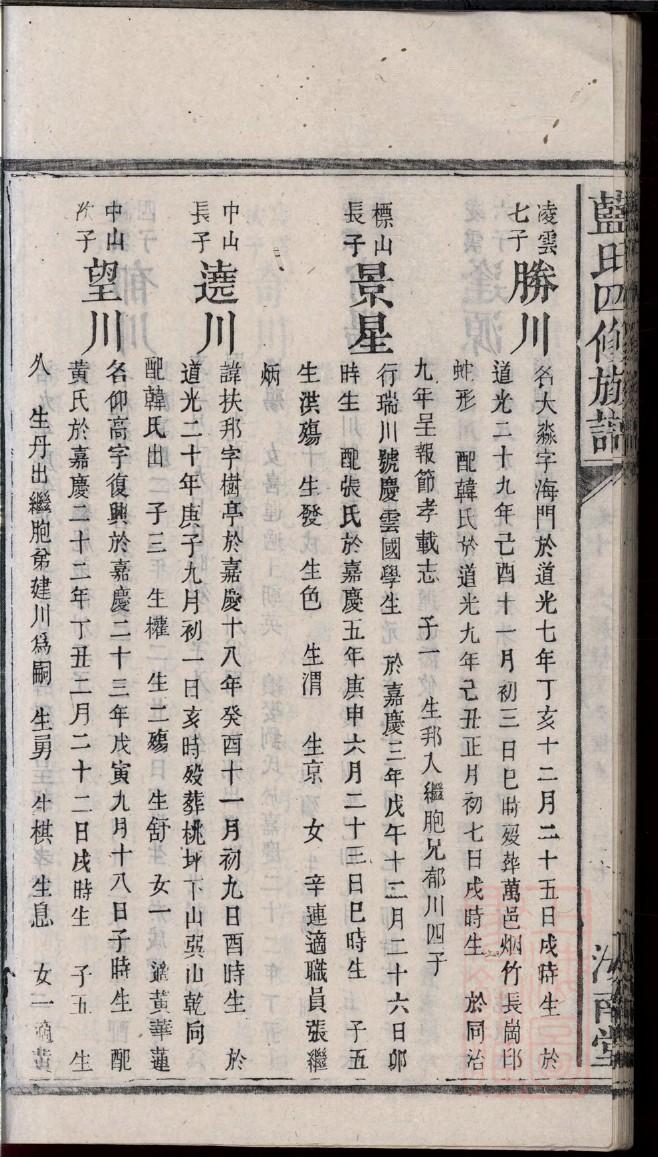 藍氏四修族譜
汝南堂
凌雲七子 勝川 名大淼字海門於道光七年丁亥十二月二十五日戌時生 於
道光二十九年己酉十一月初三日巳時歿葬萬邑烟竹長崗邱
蛇形 配韓氏於道光九年己丑正月初七日戌時生 於同治
九年呈報節孝載志 子一 生邦入繼胞兄郁川四子
標山長子 景星 行瑞川號慶雲國學生 於嘉慶三年戊午十二月二十六日卯
時生 配張氏於嘉慶五年庚申六月二十三日巳時生 子五
生洪殤 生發 生色 生渭 生京 女一 幸連適職員張繼
炳
中山長子 遶川 諱扶邦字樹亭於嘉慶十八年癸酉十一月初九日酉時生 於
道光二十年庚子九月初一日亥時歿葬桃坪下山巽山乾向
配韓氏出 子三 生權 二生 三殤 生舒 女一 適黃華蓮
中山次子 望川 名仰高字復興於嘉慶二十三年戊寅九月十八日子時生 配
黃氏於嘉慶二十二年丁丑二月二十二日戌時生 子五 生
久 生丹出繼胞弟建川為嗣 生勇 生棋 生息 女一適黃